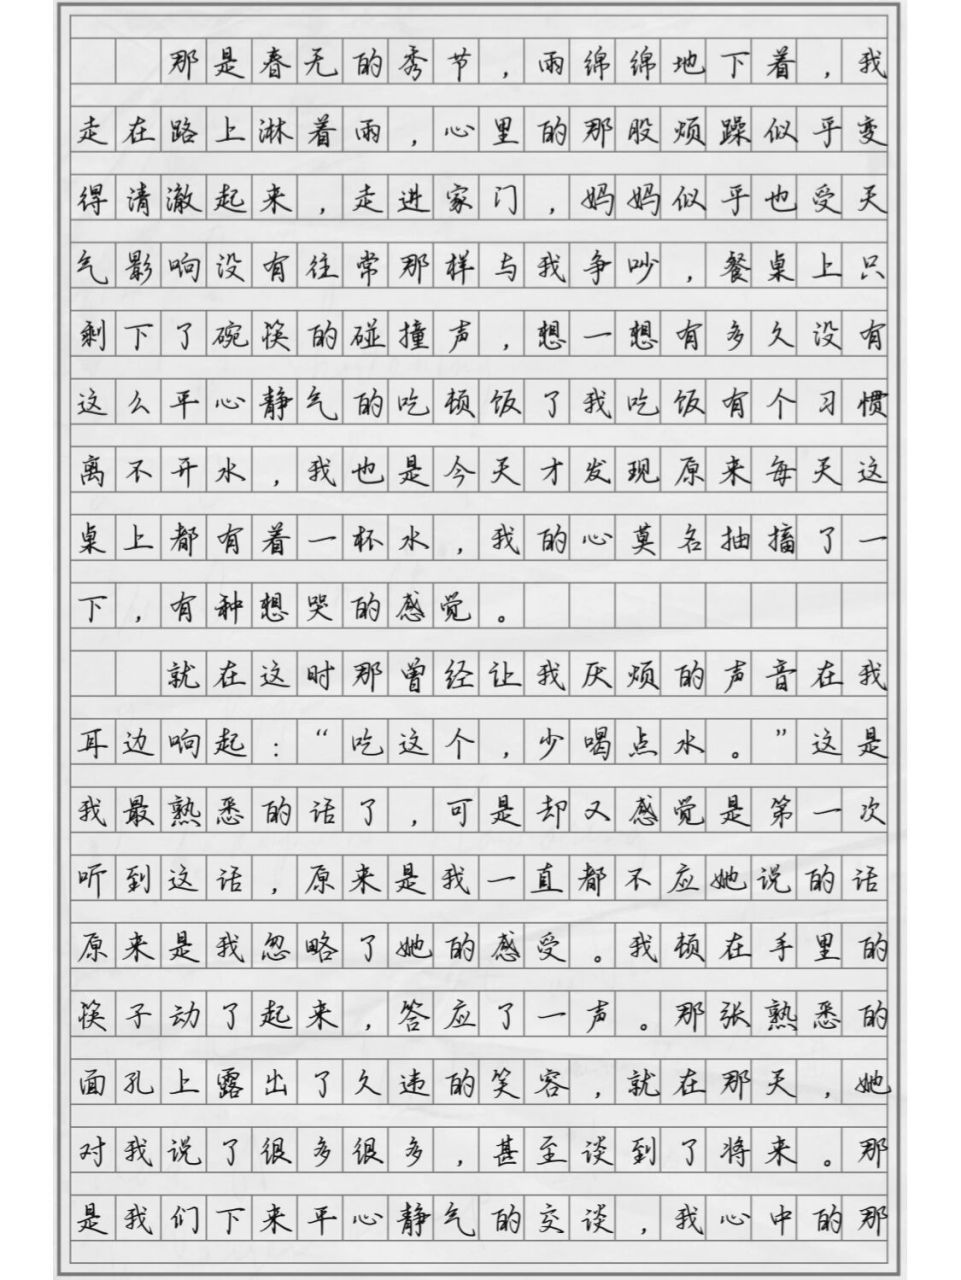 那是春无的秀节，雨绵绵地下着，我
走在路上淋着雨，心里的那股烦躁似乎变
得清澈起来，走进家门，妈妈似乎也受天
气影响没有往常那样与我争吵，餐桌上只
剩下了碗筷的碰撞声，想一想有多久没有
这么平心静气的吃顿饭了我吃饭有个习惯
离不开水，我也是今天才发现原来每天这
桌上都有着一杯水，我的心莫名抽搐了一
下，有种想哭的感觉。
就在这时那曾经让我厌烦的声音在我
耳边响起：“吃这个，少喝点水。”这是
我最熟悉的话了，可是却又感觉是第一次
听到这话，原来是我一直都不应她说的话
原来是我忽略了她的感受。我顿在手里的
筷子动了起来，答应了一声。那张熟悉的
面孔上露出了久违的笑容，就在那天，她
对我说了很多很多，甚至谈到了将来。那
是我们下来平心静气的交谈，我心中的那